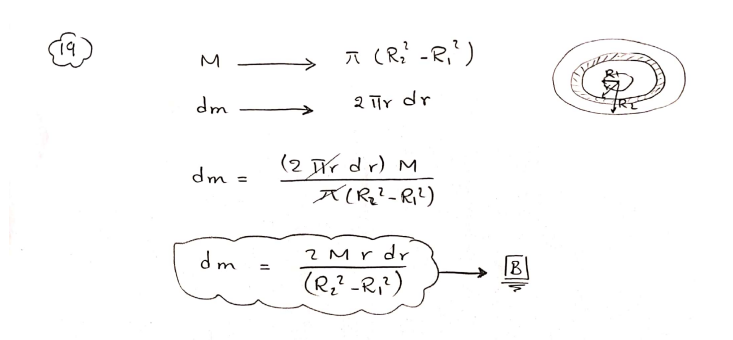 19
M ⟶ π (R₂² - R₁²)
dm ⟶ 2πr dr
R₁
R₂
dm = (2 πr dr) M / π(R₂² - R₁²)
dm = 2 M r dr / (R₂² - R₁²) ⟶ B